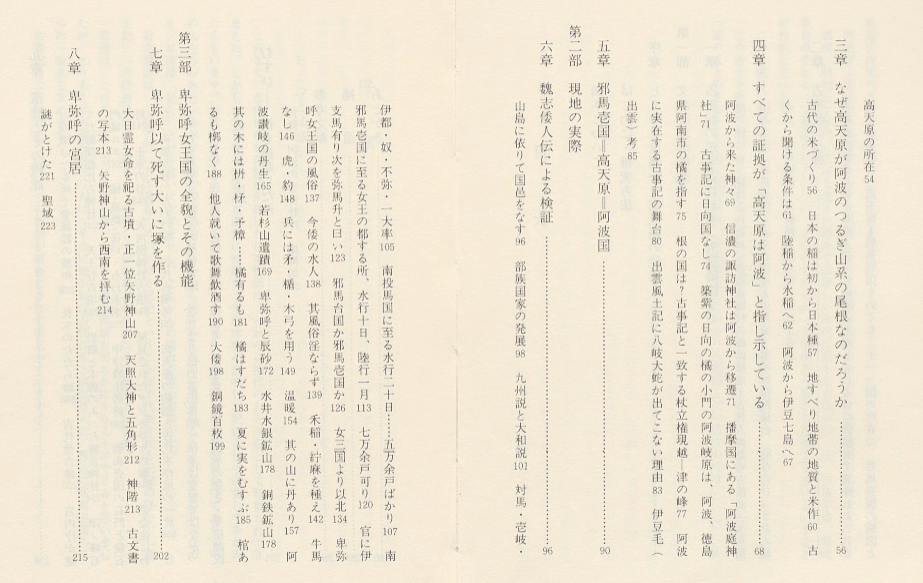 高天原の所在54
三章　なぜ高天原が阿波のつるぎ山系の尾根なのだろうか……………56
古代の米づくり56　日本の稲は初から日本種57　地すべり地帯の地質と米作60　古
くから聞ける条件は61　陸稲から水稲へ62　阿波から伊豆七島へ67
四章　すべての証拠が「高天原は阿波」と指し示している……………68
阿波から来た神々69　信濃の諏訪神社は阿波から移遷71　播摩国にある「阿波庭神
社」71　古事記に日向国なし74　築紫の日向の橘の小門の阿波岐原は、阿波、徳島
県阿南市の橘を指す75　根の国は？古事記と一致する杖立権現越―津の峰77　阿波
に実在する古事記の舞台80　出雲風土記に八岐大蛇が出てこない理由83　伊豆毛（
出雲）考85
五章　邪馬壱国＝高天原＝阿波国……………90
第二部　現地の実際
六章　魏志倭人伝による検証……………96
山島に依りて国邑をなす96　部族国家の発展98　九州説と大和説101　対馬・壱岐・
伊都・奴・不弥・一大率105　南投馬国に至る水行二十日……五万余戸ばかり107　南
邪馬壱国に至る女王の都する所、水行十日、陸行一月113　七万余戸可り120　官に伊
支馬有り次を弥馬升と曰い123　邪馬台国か邪馬壱国か126　女三国より以北134　卑弥
呼女王国の風俗137　今倭の水人138　其風俗淫ならず139　禾稲・紵麻を種え142　牛馬
なし146　虎・豹148　兵には矛・楯・木弓を用う149　温暖154　其の山に丹あり157　阿
波讃岐の丹生165　若杉山遺蹟169　卑弥呼と辰砂172　水井水銀鉱山178　銅鉄鉱山178
其の木には枏・杼・予樟……橘有るも181　橘はすだち183　夏に実をむすぶ185　棺あ
るも槨なく188　他人就いて歌舞飲酒す190　大倭198　銅鏡百枚199
第三部　卑弥呼女王国の全貌とその機能
七章　卑弥呼以て死す大いに塚を作る……………202
大日霊女命を祀る古墳・正一位矢野神山207　天照大神と五角形212　神階213　古文書
の写本213　矢野神山から西南を拝む214
八章　卑弥呼の宮居……………215
謎がとけた221　聖域223